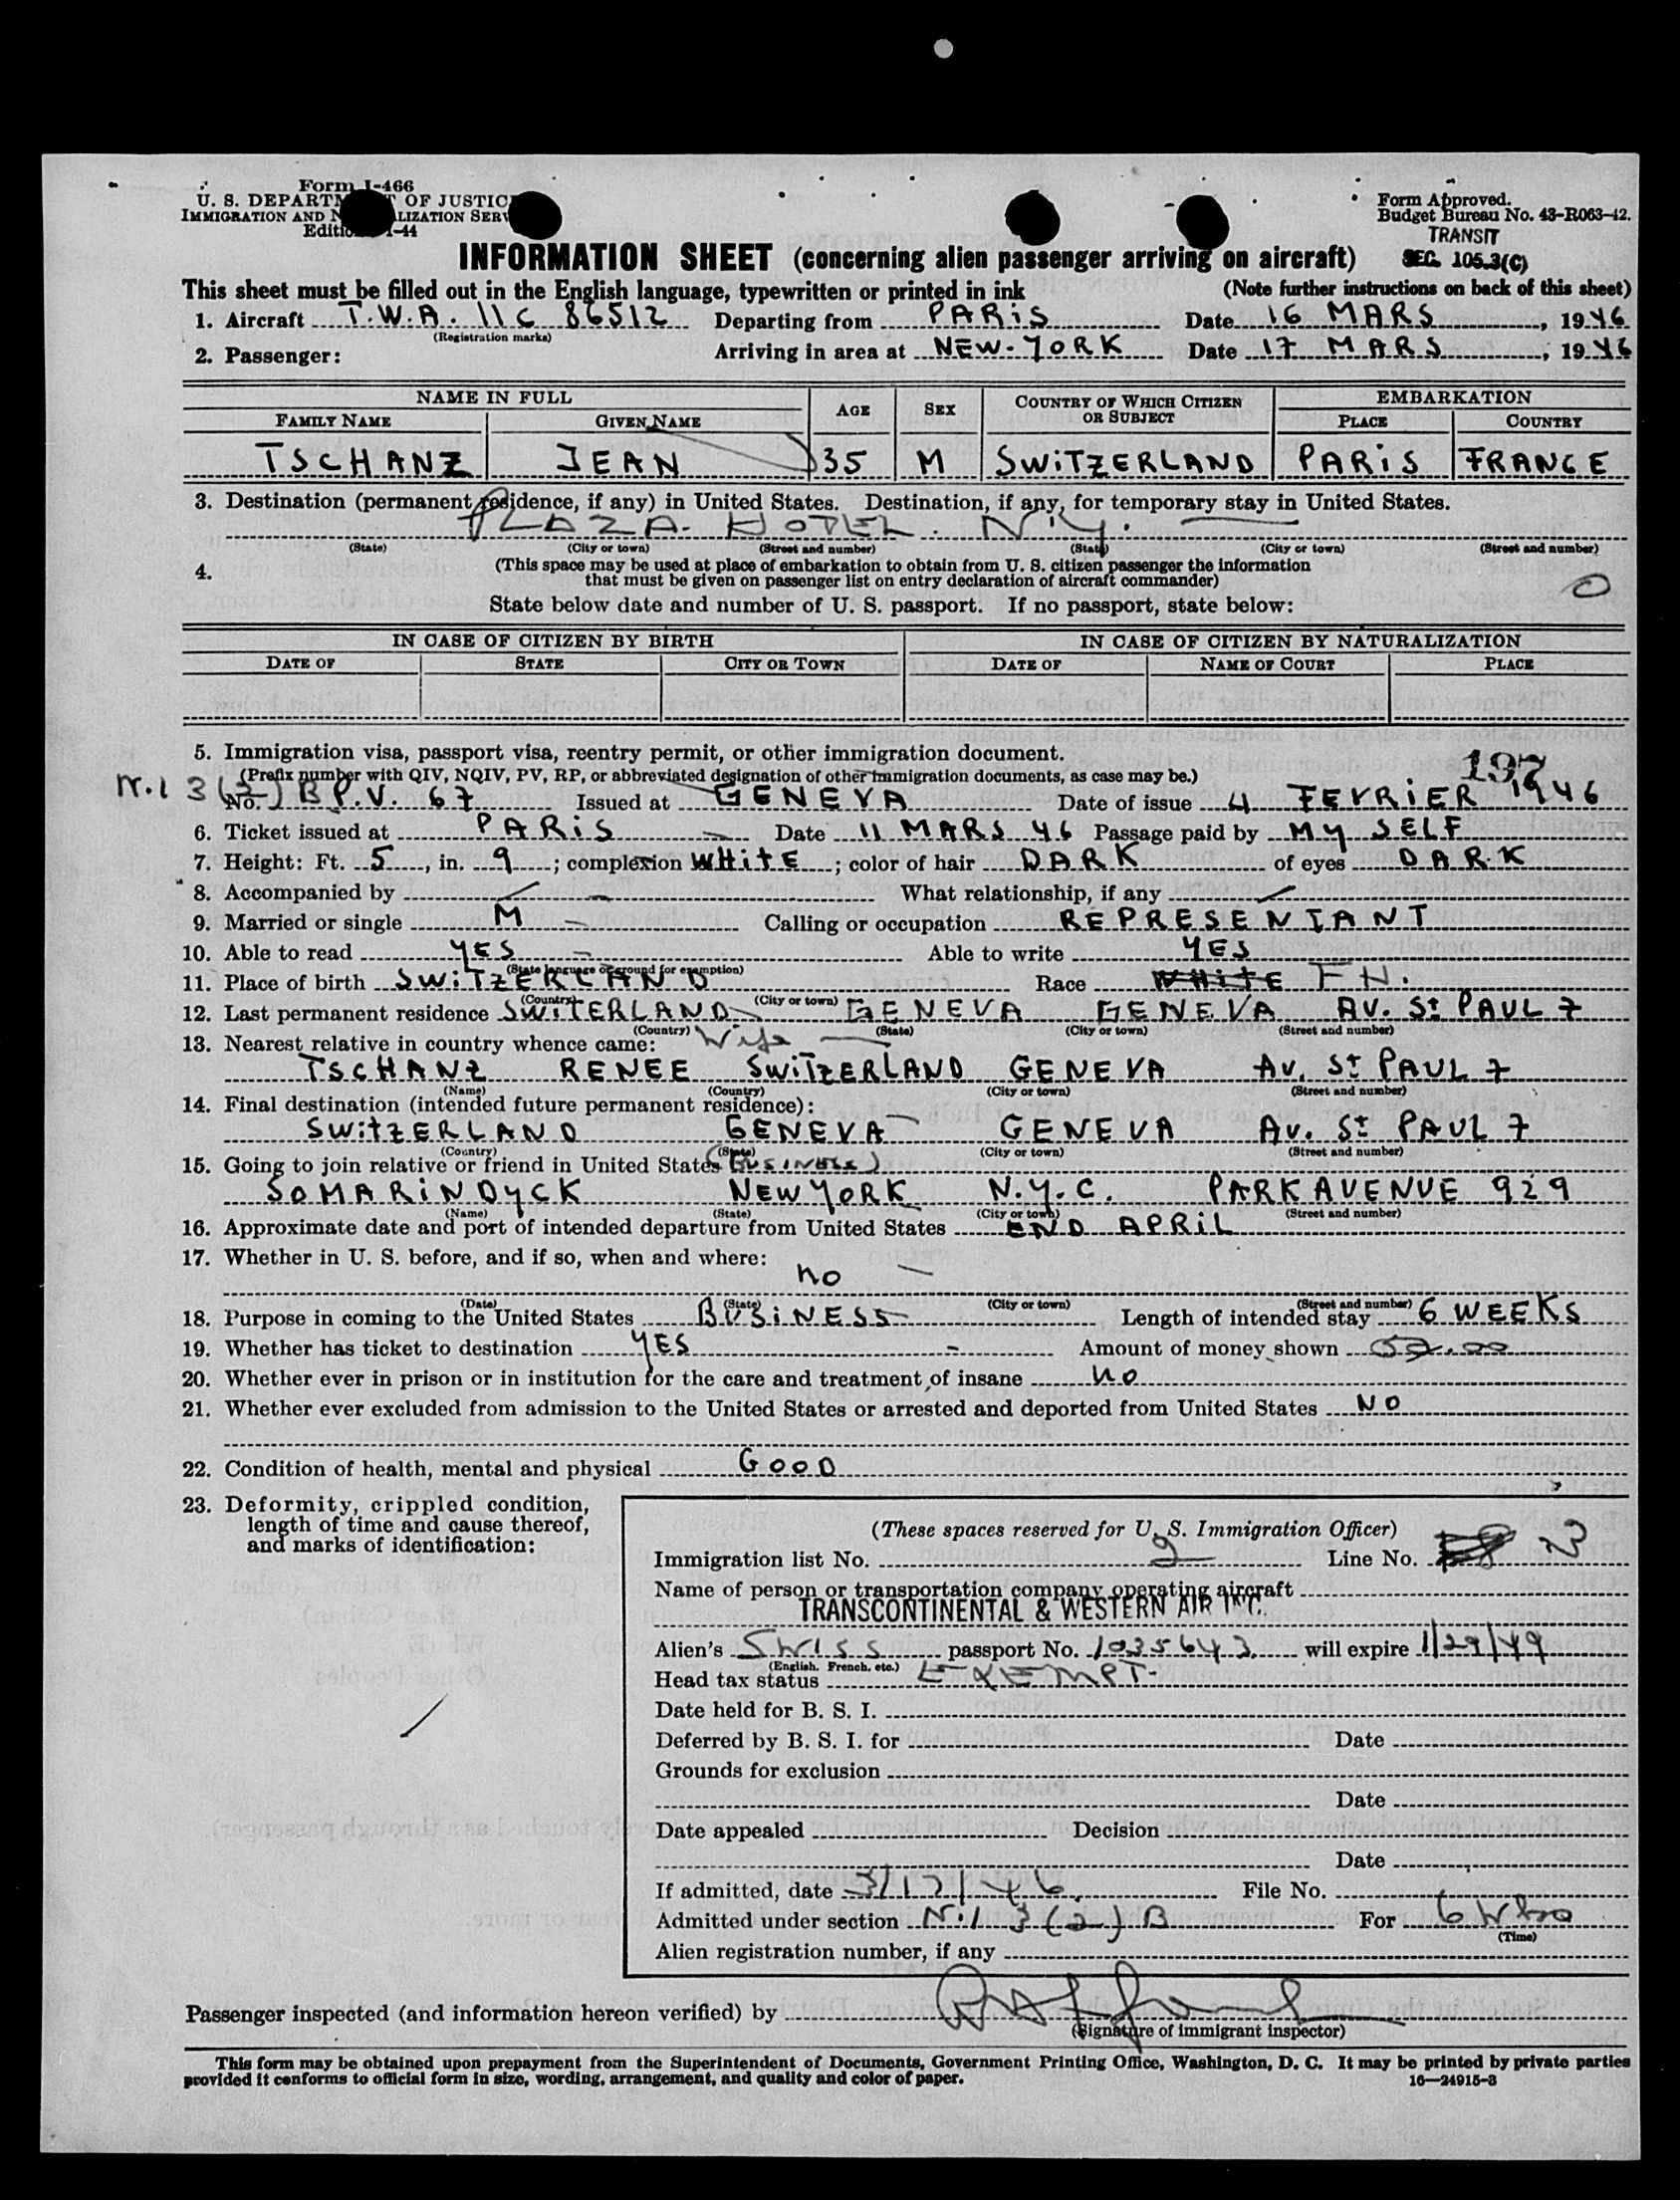 Form I-466
U. S. DEPARTM T OF JUSTIC
IMMIGRATION AND N LIZATION SERV
Editio 1-44
Form Approved.
Budget Bureau No. 43-R063-42.
TRANSIT
SEC. 105.3(C)
INFORMATION SHEET (concerning alien passenger arriving on aircraft)
This sheet must be filled out in the English language, typewritten or printed in ink (Note further instructions on back of this sheet)
1. Aircraft T.W.A. 11C 86512 Departing from PARiS Date 16 MARS, 1946
(Registration marks)
2. Passenger: Arriving in area at NEW-YORK Date 17 MARS, 1946
NAME IN FULL AGE SEX COUNTRY OF WHICH CITIZEN OR SUBJECT EMBARKATION
FAMILY NAME GIVEN NAME PLACE COUNTRY
TSCHANZ JEAN 35 M SWiTZERLAND PARiS FRANCE
3. Destination (permanent residence, if any) in United States. Destination, if any, for temporary stay in United States.
PLAZA HOTEL. N.Y.
(State) (City or town) (Street and number) (State) (City or town) (Street and number)
4. (This space may be used at place of embarkation to obtain from U. S. citizen passenger the information
that must be given on passenger list on entry declaration of aircraft commander)
0
State below date and number of U. S. passport. If no passport, state below:
IN CASE OF CITIZEN BY BIRTH IN CASE OF CITIZEN BY NATURALIZATION
DATE OF STATE CITY OR TOWN DATE OF NAME OF COURT PLACE
5. Immigration visa, passport visa, reentry permit, or other immigration document.
(Prefix number with QIV, NQIV, PV, RP, or abbreviated designation of other immigration documents, as case may be.) 197
N.I 3(2)B No. P.V. 67 Issued at GENEVA Date of issue 4 FEVRiER 1946
6. Ticket issued at PARiS Date 11 MARS 46 Passage paid by MY SELF
7. Height: Ft. 5, in. 9; complexion WHitE; color of hair DARK of eyes DARK
8. Accompanied by What relationship, if any
9. Married or single M Calling or occupation REPRESENTANT
10. Able to read YES Able to write YES
(State language or ground for exemption)
11. Place of birth SWiTZERLAND Race WHitE FH.
(Country) (City or town)
12. Last permanent residence SWiTERLAND GENEVA GENEVA AV. St PAUL 7
(Country) (State) (City or town) (Street and number)
13. Nearest relative in country whence came: Wife
TSCHANZ RENEE SWiTZERLAND GENEVA AV. St PAUL 7
(Name) (Country) (City or town) (Street and number)
14. Final destination (intended future permanent residence):
SWitZERLAND GENEVA GENEVA AV. St PAUL 7
(Country) (State) (City or town) (Street and number)
15. Going to join relative or friend in United States (BUSINESS)
SOMARiNDYCK NEW YORK N.Y.C. PARK AVENUE 929
(Name) (State) (City or town) (Street and number)
16. Approximate date and port of intended departure from United States END APRiL
17. Whether in U. S. before, and if so, when and where:
no
(Date) (State) (City or town) (Street and number)
18. Purpose in coming to the United States BUSiNESS Length of intended stay 6 WEEKS
19. Whether has ticket to destination YES Amount of money shown 50.00
20. Whether ever in prison or in institution for the care and treatment of insane NO
21. Whether ever excluded from admission to the United States or arrested and deported from United States NO
22. Condition of health, mental and physical GOOD
23. Deformity, crippled condition,
length of time and cause thereof,
and marks of identification:
(These spaces reserved for U. S. Immigration Officer)
Immigration list No. 2 Line No. 3
Name of person or transportation company operating aircraft
TRANSCONTINENTAL & WESTERN AIR INC.
Alien's Swiss passport No. 1035643 will expire 1/29/49
(English, French, etc.)
Head tax status EXEMPT
Date held for B. S. I.
Deferred by B. S. I. for Date
Grounds for exclusion
Date
Date appealed Decision
Date
If admitted, date 3/17/46 File No.
Admitted under section N.I 3(2)B For 6 wks
(Time)
Alien registration number, if any
Passenger inspected (and information hereon verified) by
(Signature of immigrant inspector)
This form may be obtained upon prepayment from the Superintendent of Documents, Government Printing Office, Washington, D. C. It may be printed by private parties
provided it conforms to official form in size, wording, arrangement, and quality and color of paper. 16—24915-3